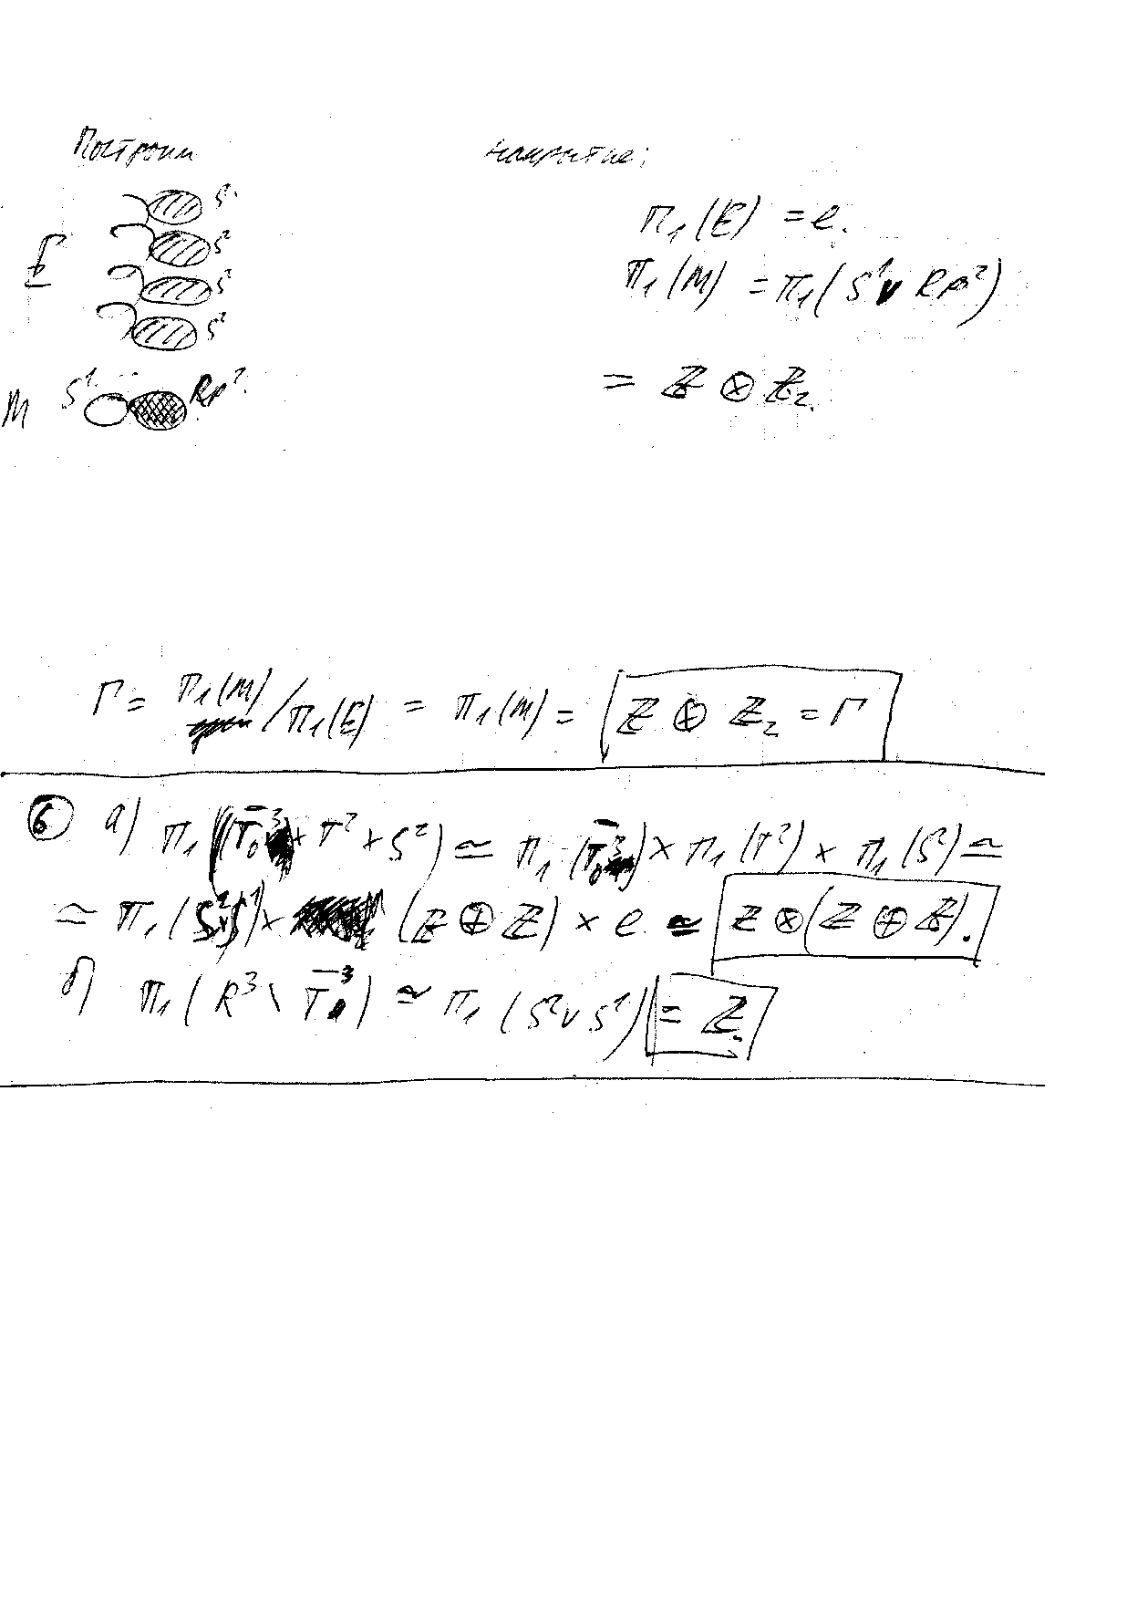 Построим накрытие:
S²
E S²
S²
S²
π₁(E) = e.
π₁(M) = π₁(S¹ ∨ RP²)
= ℤ ⊗ ℤ₂.
M S¹ RP²
Γ = π₁(M) / π₁(E) = π₁(M) = ℤ ⊕ ℤ₂ = Γ
⑥ а) π₁((T̄₀³) × T² × S²) ≃ π₁(T̄₀³) × π₁(T²) × π₁(S²) ≃
≃ π₁(S² ∨ S¹) × (ℤ ⊕ ℤ) × e ≃ ℤ ⊗ (ℤ ⊕ ℤ).
б) π₁(R³ \ T̄₀³) ≃ π₁(S² ∨ S¹) = ℤ.